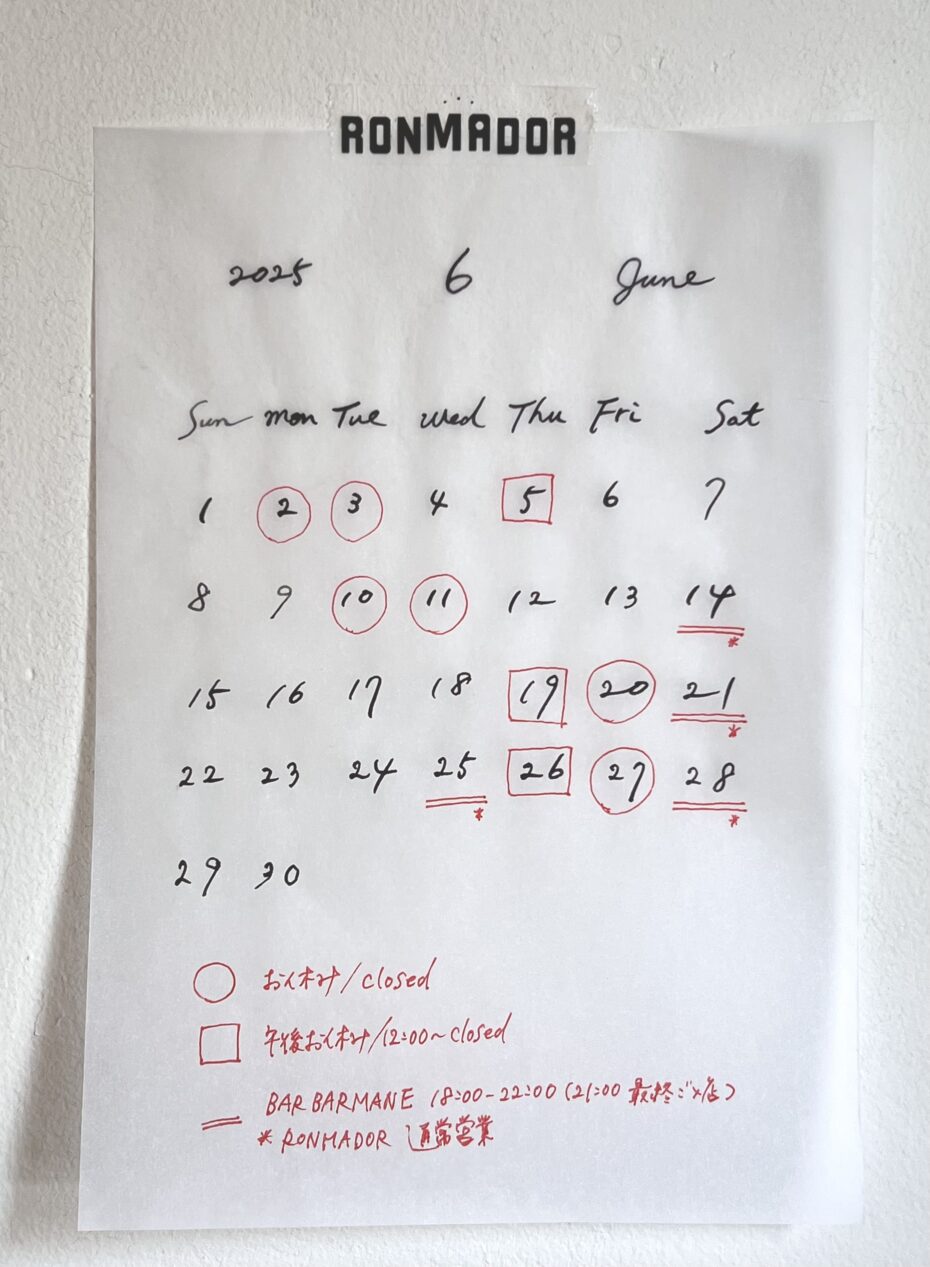 RONMADOR
2025 6 June
Sun mon Tue wed Thu Fri Sat
1 2 3 4 5 6 7
8 9 10 11 12 13 14
*
15 16 17 18 19 20 21
*
22 23 24 25 26 27 28
* *
29 30
お休み/closed
午後お休み/12:00~closed
BAR BARMANE 18:00-22:00 (21:00 最終ご入店)
* RONMADOR 通常営業